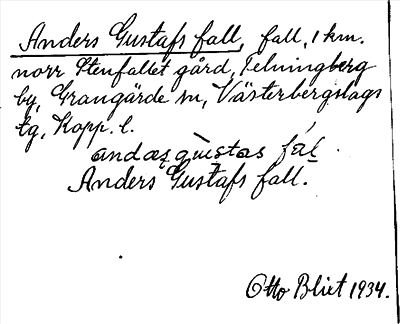 Anders Gustafs fall, fall, 1 km.
norr Stenfallet gård, Telningberg
by, Grangärde sn, Västerbergslags
tg, Kopp. l.
Anders Gustafs fall.
Otto Blixt 1934.